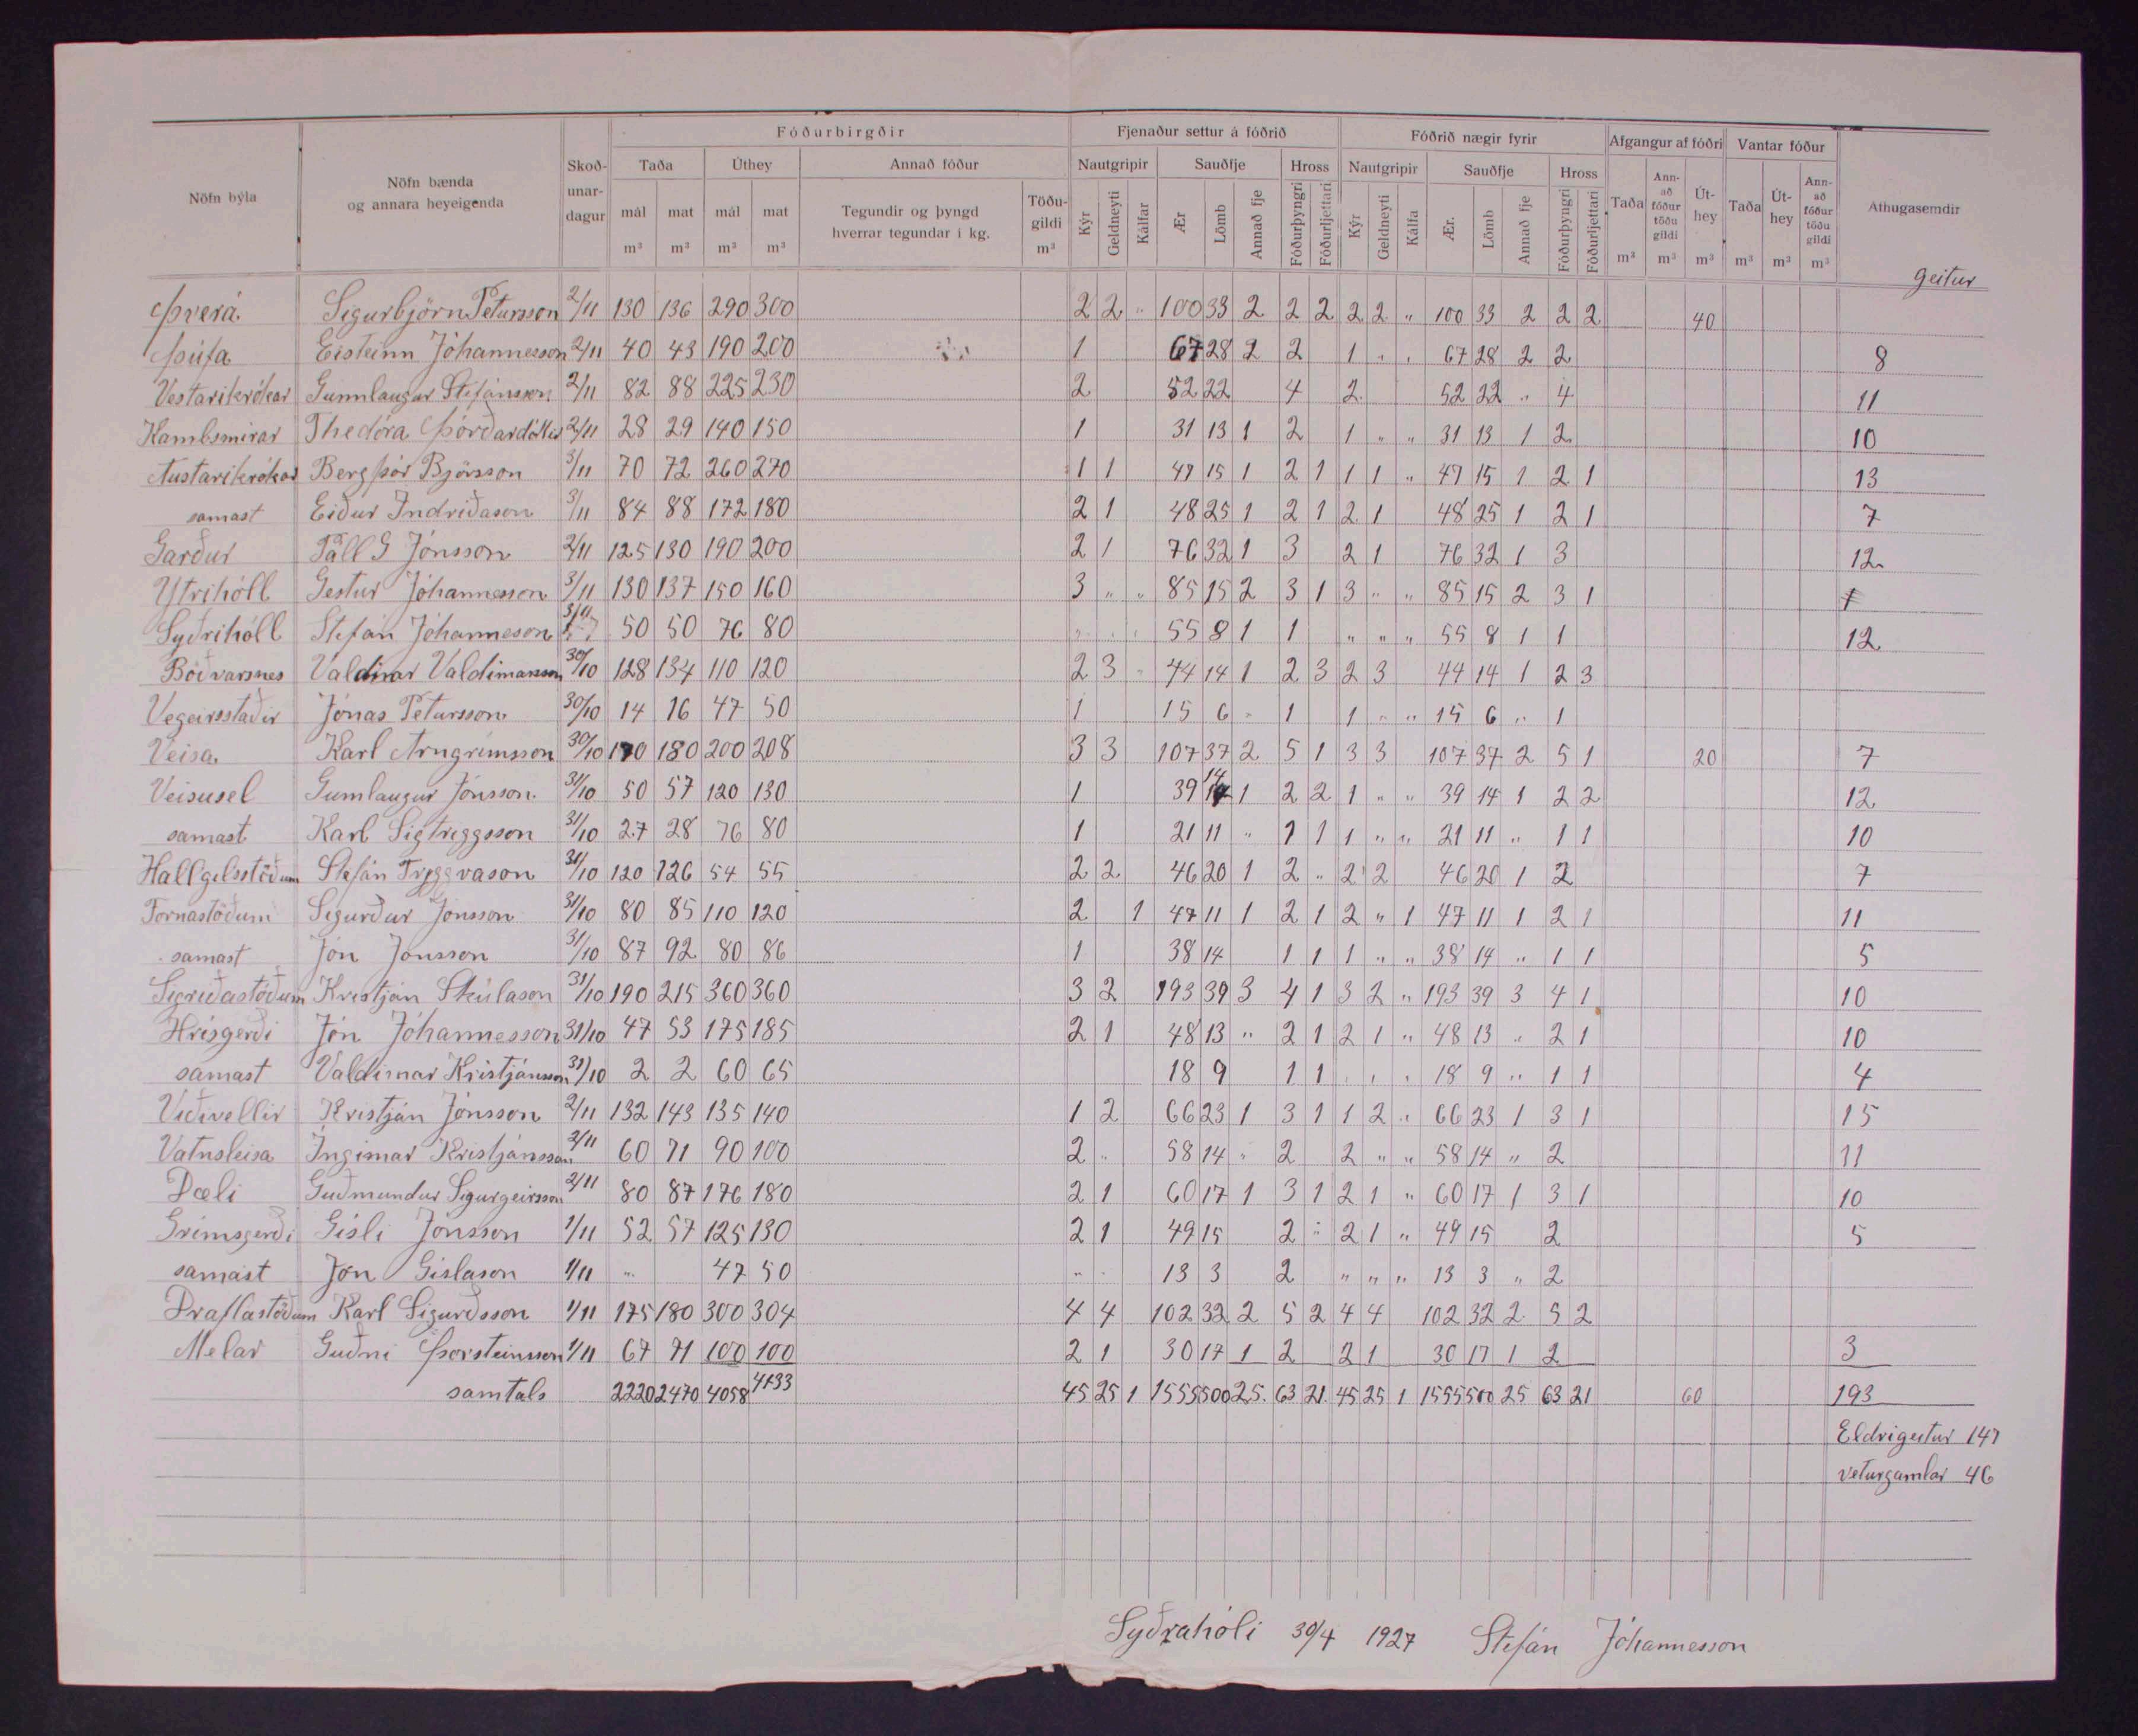 Fóðurbirgðir Fjenaður settur á fóðrið Fóðrið nægir fyrir Afgangur af fóðri Vantar fóður
Nöfn býla Nöfn bænda og annara heyeigenda Skoðunardagur Taða Úthey Annað fóður Nautgripir Sauðfje Hross Nautgripir Sauðfje Hross Taða Annað fóður töðu gildi Úthey Taða Úthey Annað fóður töðu gildi Athugasemdir
mál mat mál mat Tegundir og þyngd hverrar tegundar í kg. Töðugildi Kýr Geldneyti Kálfar Ær Lömb Annað fje Fóðurþyngri Fóðurljettari Kýr Geldneyti Kálfa Ær. Lömb Annað fje Fóðurþyngri Fóðurljettari
m³ m³ m³ m³ m³ m³ m³ m³ m³ m³ m³
Geitur
Þverá Sigurbjörn Petursson 2/11 130 136 290 300 2 2 " 100 33 2 2 2 2 2 " 100 33 2 2 2 40
Þúfa Eisteinn Jóhannesson 2/11 40 43 190 200 1 67 28 2 2 1 " " 67 28 2 2 8
Vestarikrókar Gunnlaugur Stefánsson 2/11 82 88 225 230 2 52 22 4 2 52 22 " 4 11
Kambsmirar Thedóra Þórðardóttir 2/11 28 29 140 150 1 31 13 1 2 1 " " 31 13 1 2 10
Austarikrókar Bergþór Björsson 3/11 70 72 260 270 1 1 49 15 1 2 1 1 1 " 49 15 1 2 1 13
samast Eiður Indriðason 3/11 84 88 172 180 2 1 48 25 1 2 1 2 1 48 25 1 2 1 7
Garður Páll G Jónsson 2/11 125 130 190 200 2 1 76 32 1 3 2 1 76 32 1 3 12
Ytrihóll Gestur Jóhannesson 3/11 130 137 150 160 3 " " 85 15 2 3 1 3 " " 85 15 2 3 1
Syðrihóll Stefán Jóhanneson 3/11 50 50 76 80 " " " 55 8 1 1 " " " 55 8 1 1 12
Böðvarsnes Valdimar Valdimarsson 30/10 128 134 110 120 2 3 " 44 14 1 2 3 2 3 44 14 1 2 3
Vegeirsstaðir Jónas Petursson 30/10 14 16 47 50 1 15 6 " 1 1 " " 15 6 " 1
Veisa Karl Arngrímsson 30/10 170 180 200 208 3 3 107 37 2 5 1 3 3 107 37 2 5 1 20 7
Veisusel Gunnlaugur Jónsson 31/10 50 57 120 130 1 39 14 1 2 2 1 " " 39 14 1 2 2 12
samast Karl Sigtriggsson 31/10 27 28 76 80 1 21 11 " 1 1 1 " " 21 11 " 1 1 10
Hallgilsstöðum Stefán Tryggvason 31/10 120 126 54 55 2 2 46 20 1 2 " 2 2 46 20 1 2 7
Fornastöðum Sigurður Jónsson 31/10 80 85 110 120 2 1 47 11 1 2 1 2 " 1 47 11 1 2 1 11
samast Jón Jónsson 31/10 87 92 80 86 1 38 14 1 1 1 " " 38 14 " 1 1 5
Sigriðastöðum Kristján Skúlason 31/10 190 215 360 360 3 2 193 39 3 4 1 3 2 " 193 39 3 4 1 10
Hrísgerði Jón Jóhannesson 31/10 47 53 175 185 2 1 48 13 " 2 1 2 1 " 48 13 " 2 1 10
samast Valdimar Kristjánsson 31/10 2 2 60 65 18 9 1 1 " " " 18 9 " 1 1 4
Viðivellir Kristján Jónsson 2/11 132 143 135 140 1 2 66 23 1 3 1 1 2 " 66 23 1 3 1 15
Vatnsleisa Ingimar Kristjánsson 2/11 60 71 90 100 2 " 58 14 " 2 2 " " 58 14 " 2 11
Dæli Guðmundur Sigurgeirsson 2/11 80 87 176 180 2 1 60 17 1 3 1 2 1 " 60 17 1 3 1 10
Grímsgerði Gísli Jónsson 1/11 52 57 125 130 2 1 49 15 2 " 2 1 " 49 15 2 5
samast Jón Gíslason 1/11 " 47 50 " " 13 3 2 " " " 13 3 " 2
Draflastöðum Karl Sigurðsson 1/11 175 180 300 304 4 4 102 32 2 5 2 4 4 102 32 2 5 2
Melar Guðni Þorsteinsson 1/11 67 71 100 100 2 1 30 17 1 2 2 1 30 17 1 2 3
samtals 2220 2470 4058 4133 45 25 1 1555 500 25. 63 21. 45 25 1 1555 500 25 63 21 60 193
Eldrigeitur 147
veturgamlar 46
Syðrahóli 30/4 1927 Stefán Jóhannesson